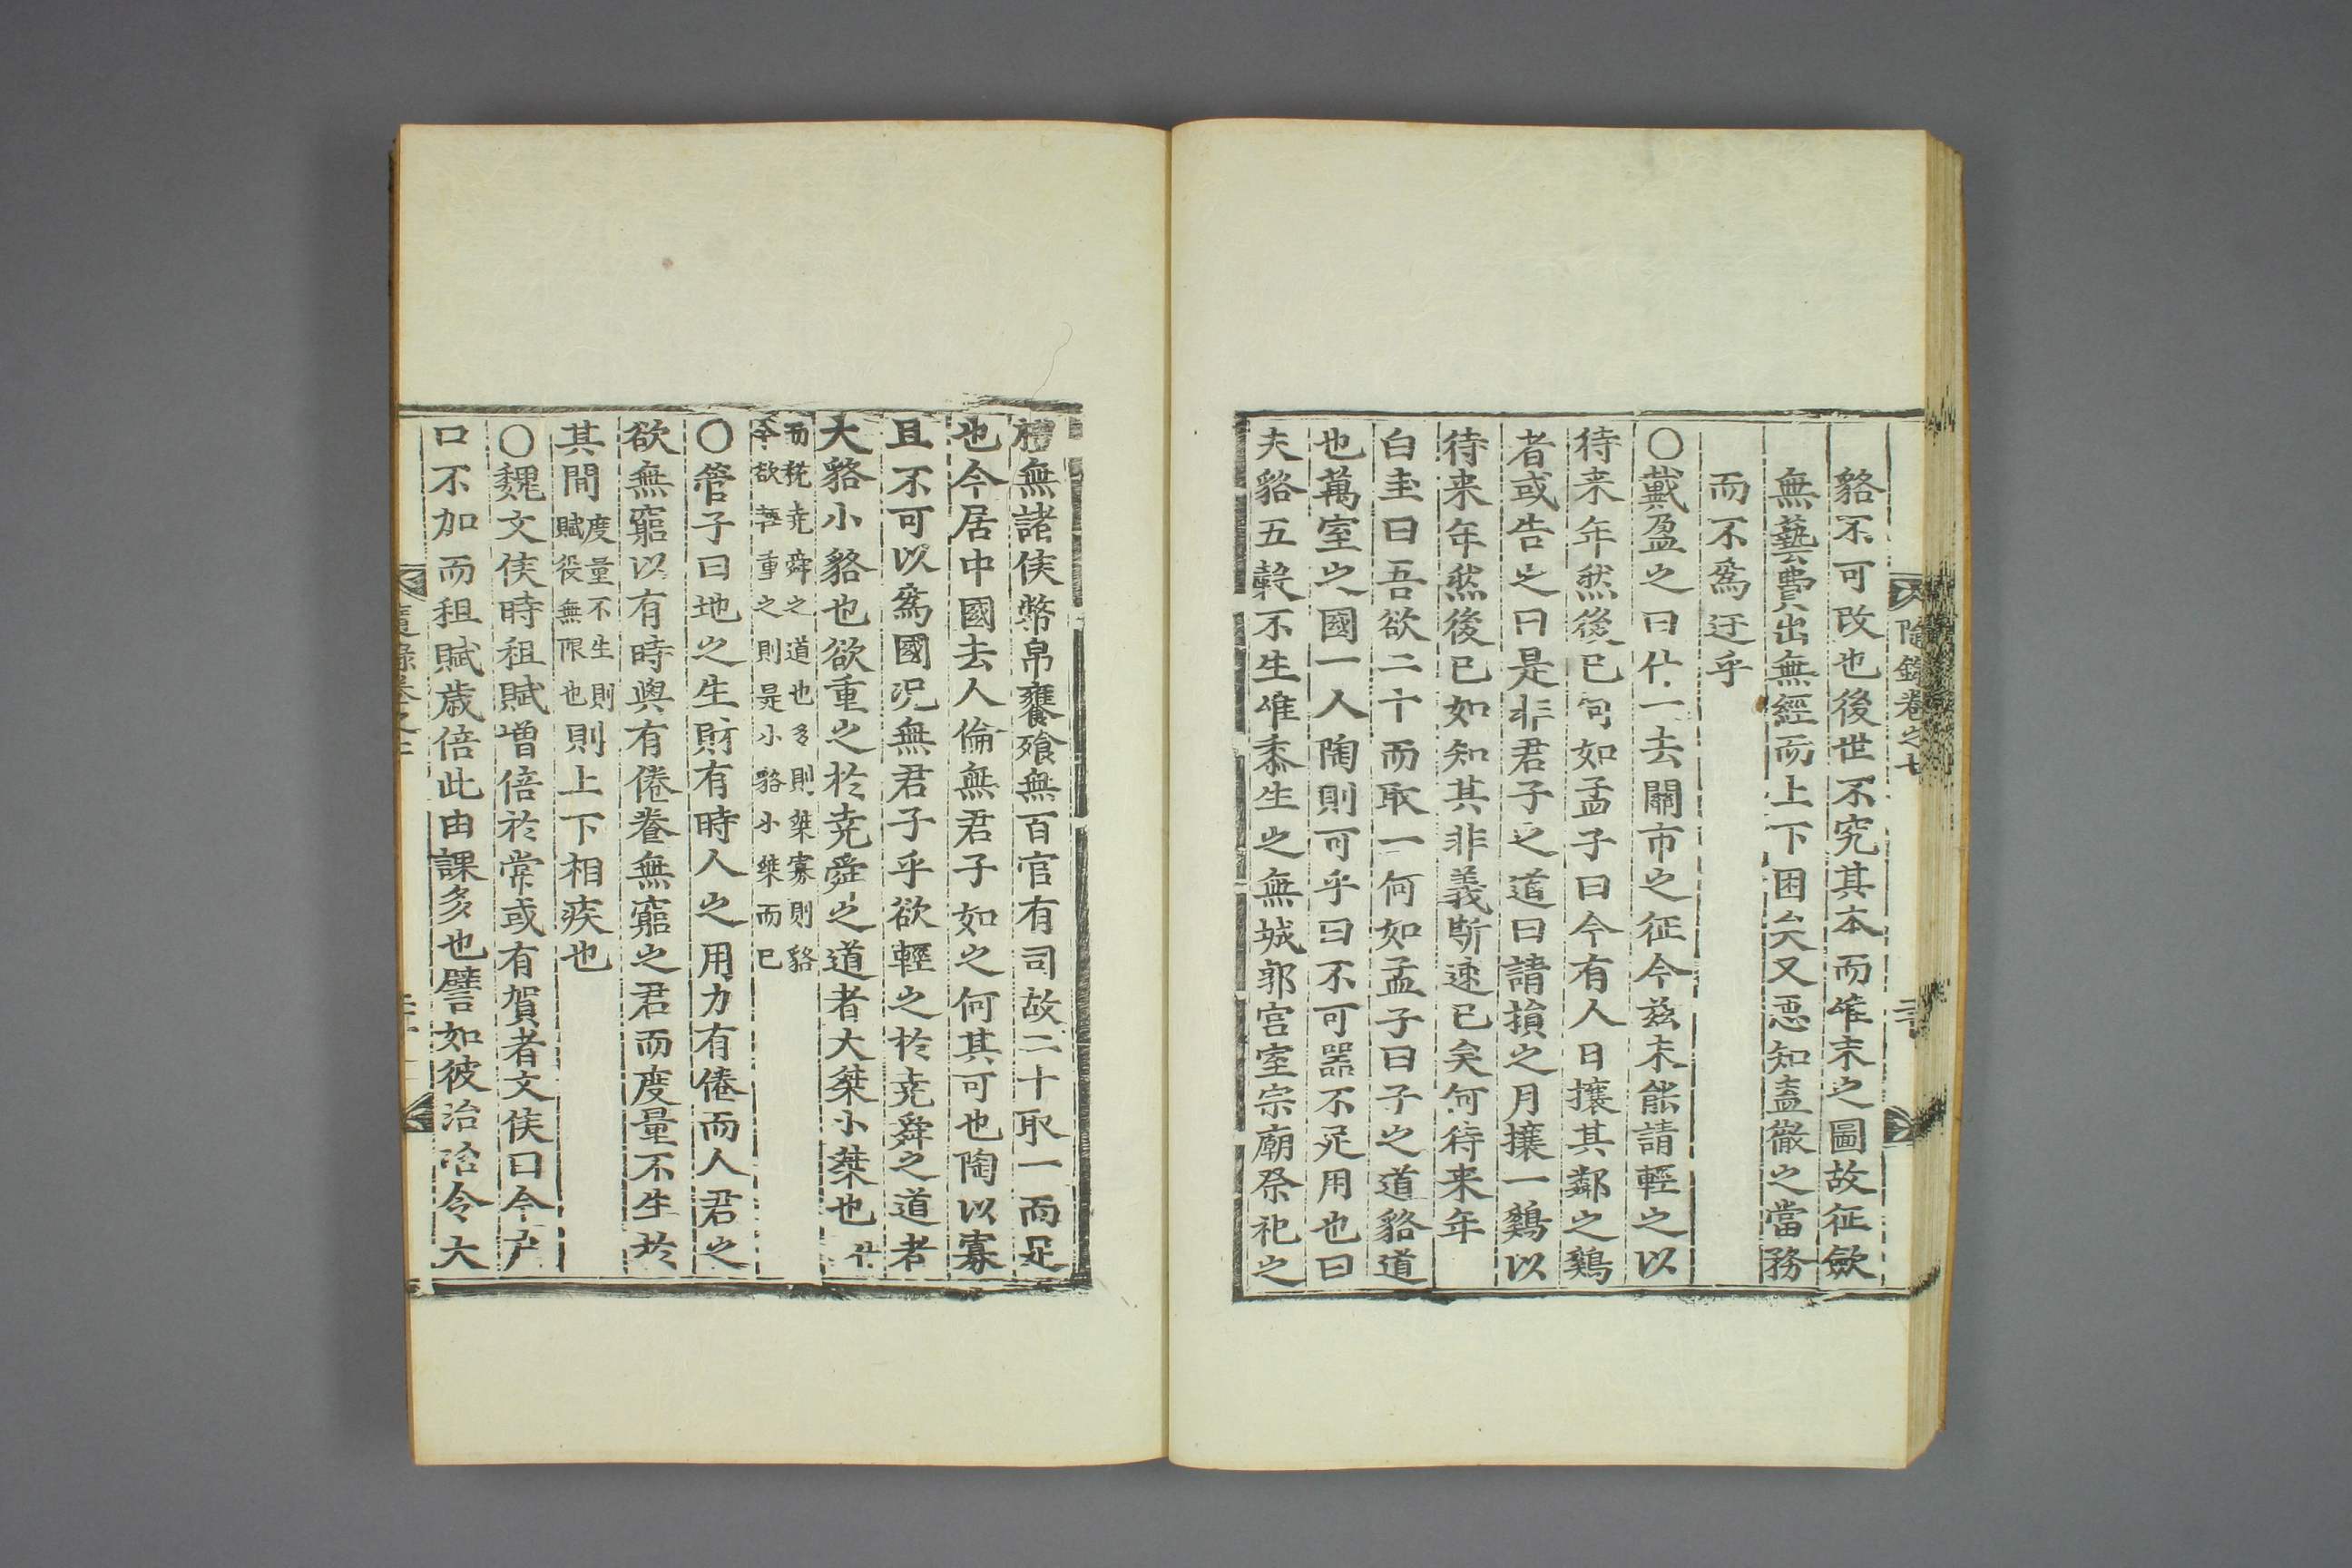 貉不可改也後世不究其本而唯末之圖故征歛
無藝費出無經而上下困矣又惡知盍徹之當務
而不爲迂乎
○戴盈之曰什一去關市之征今玆未能請輕之以
待来年然後已何如孟子曰今有人日攘其鄰之鷄
者或告之曰是非君子之道曰請損之月攘一鷄以
待来年然後已如知其非義斯速已矣何待来年
白圭曰吾欲二十而取一何如孟子曰子之道貉道
也萬室之國一人陶則可乎曰不可器不足用也曰
夫貉五穀不生唯黍生之無城郭宮室宗廟祭祀之
禮無諸侯幣帛饔飱無百官有司故二十取一而足
也今居中國去人倫無君子如之何其可也陶以寡
且不可以爲國況無君子乎欲輕之於堯舜之道者
大貉小貉也欲重之於堯舜之道者大桀小桀也什一
而稅堯舜之道也多則桀寡則貉
今欲輕重之則是小貉小桀而已
○管子曰地之生財有時人之用力有倦而人君之
欲無窮以有時與有倦養無窮之君而度量不生於
其間度量不生則賦役無限也則上下相疾也
○魏文侯時租賦增倍於常或有賀者文侯曰今戶
口不加而租賦歲倍此由課多也譬如彼治冶令大